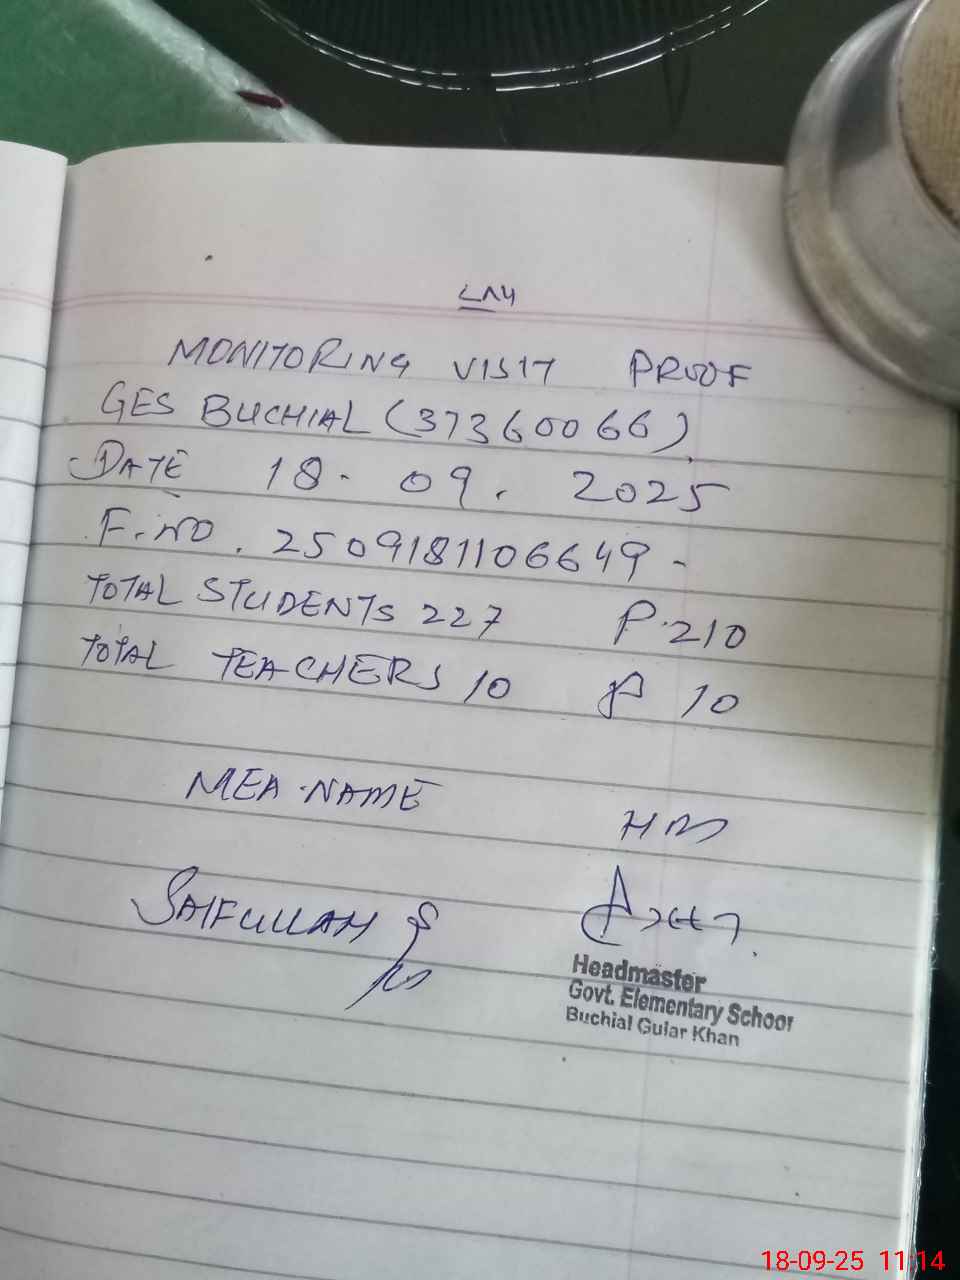 MONITORING VISIT PROOF
GES BUCHIAL (37360066).
DATE 18. 09. 2025
F.NO. 2509181106649 -
TOTAL STUDENTS 227 P.210
TOTAL TEACHERS 10 P 10
MEA.NAME
HM
SAIFULLAH
Headmaster
Govt. Elementary School
Buchial Gular Khan
18-09-25 11:14